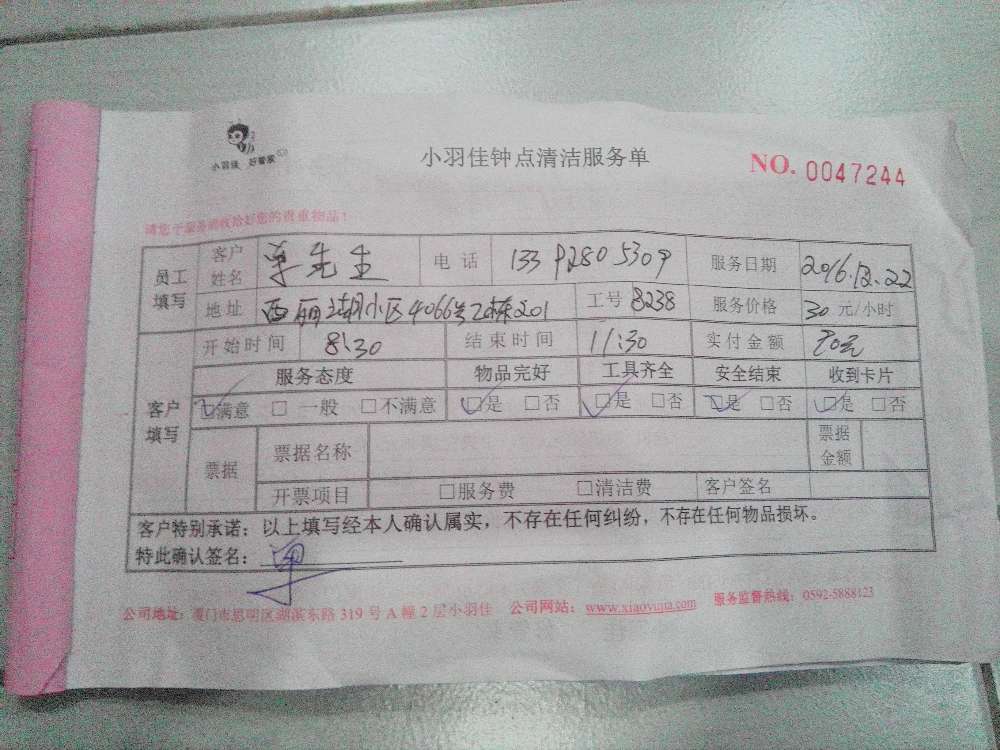 小羽佳 好管家
小羽佳钟点清洁服务单
NO. 0047244
请您于服务前收拾好您的贵重物品！
员工填写 客户姓名 先生 电话 133 9280 5309 服务日期 2016.12.22
地址 西丽湖小区4066号2栋201 工号 8238 服务价格 30 元/小时
客户填写 开始时间 8:30 结束时间 11:30 实付金额 90元
服务态度 物品完好 工具齐全 安全结束 收到卡片
☑满意 □ 一般 □不满意 ☑是 □否 ☑是 □否 ☑是 □否 ☑是 □否
票据 票据名称 票据金额
开票项目 □服务费 □清洁费 客户签名
客户特别承诺：以上填写经本人确认属实，不存在任何纠纷，不存在任何物品损坏。
特此确认签名：
公司地址：厦门市思明区湖滨东路 319 号 A 幢 2 层小羽佳 公司网站：www.xiaoyujia.com 服务监督热线：0592-5888123